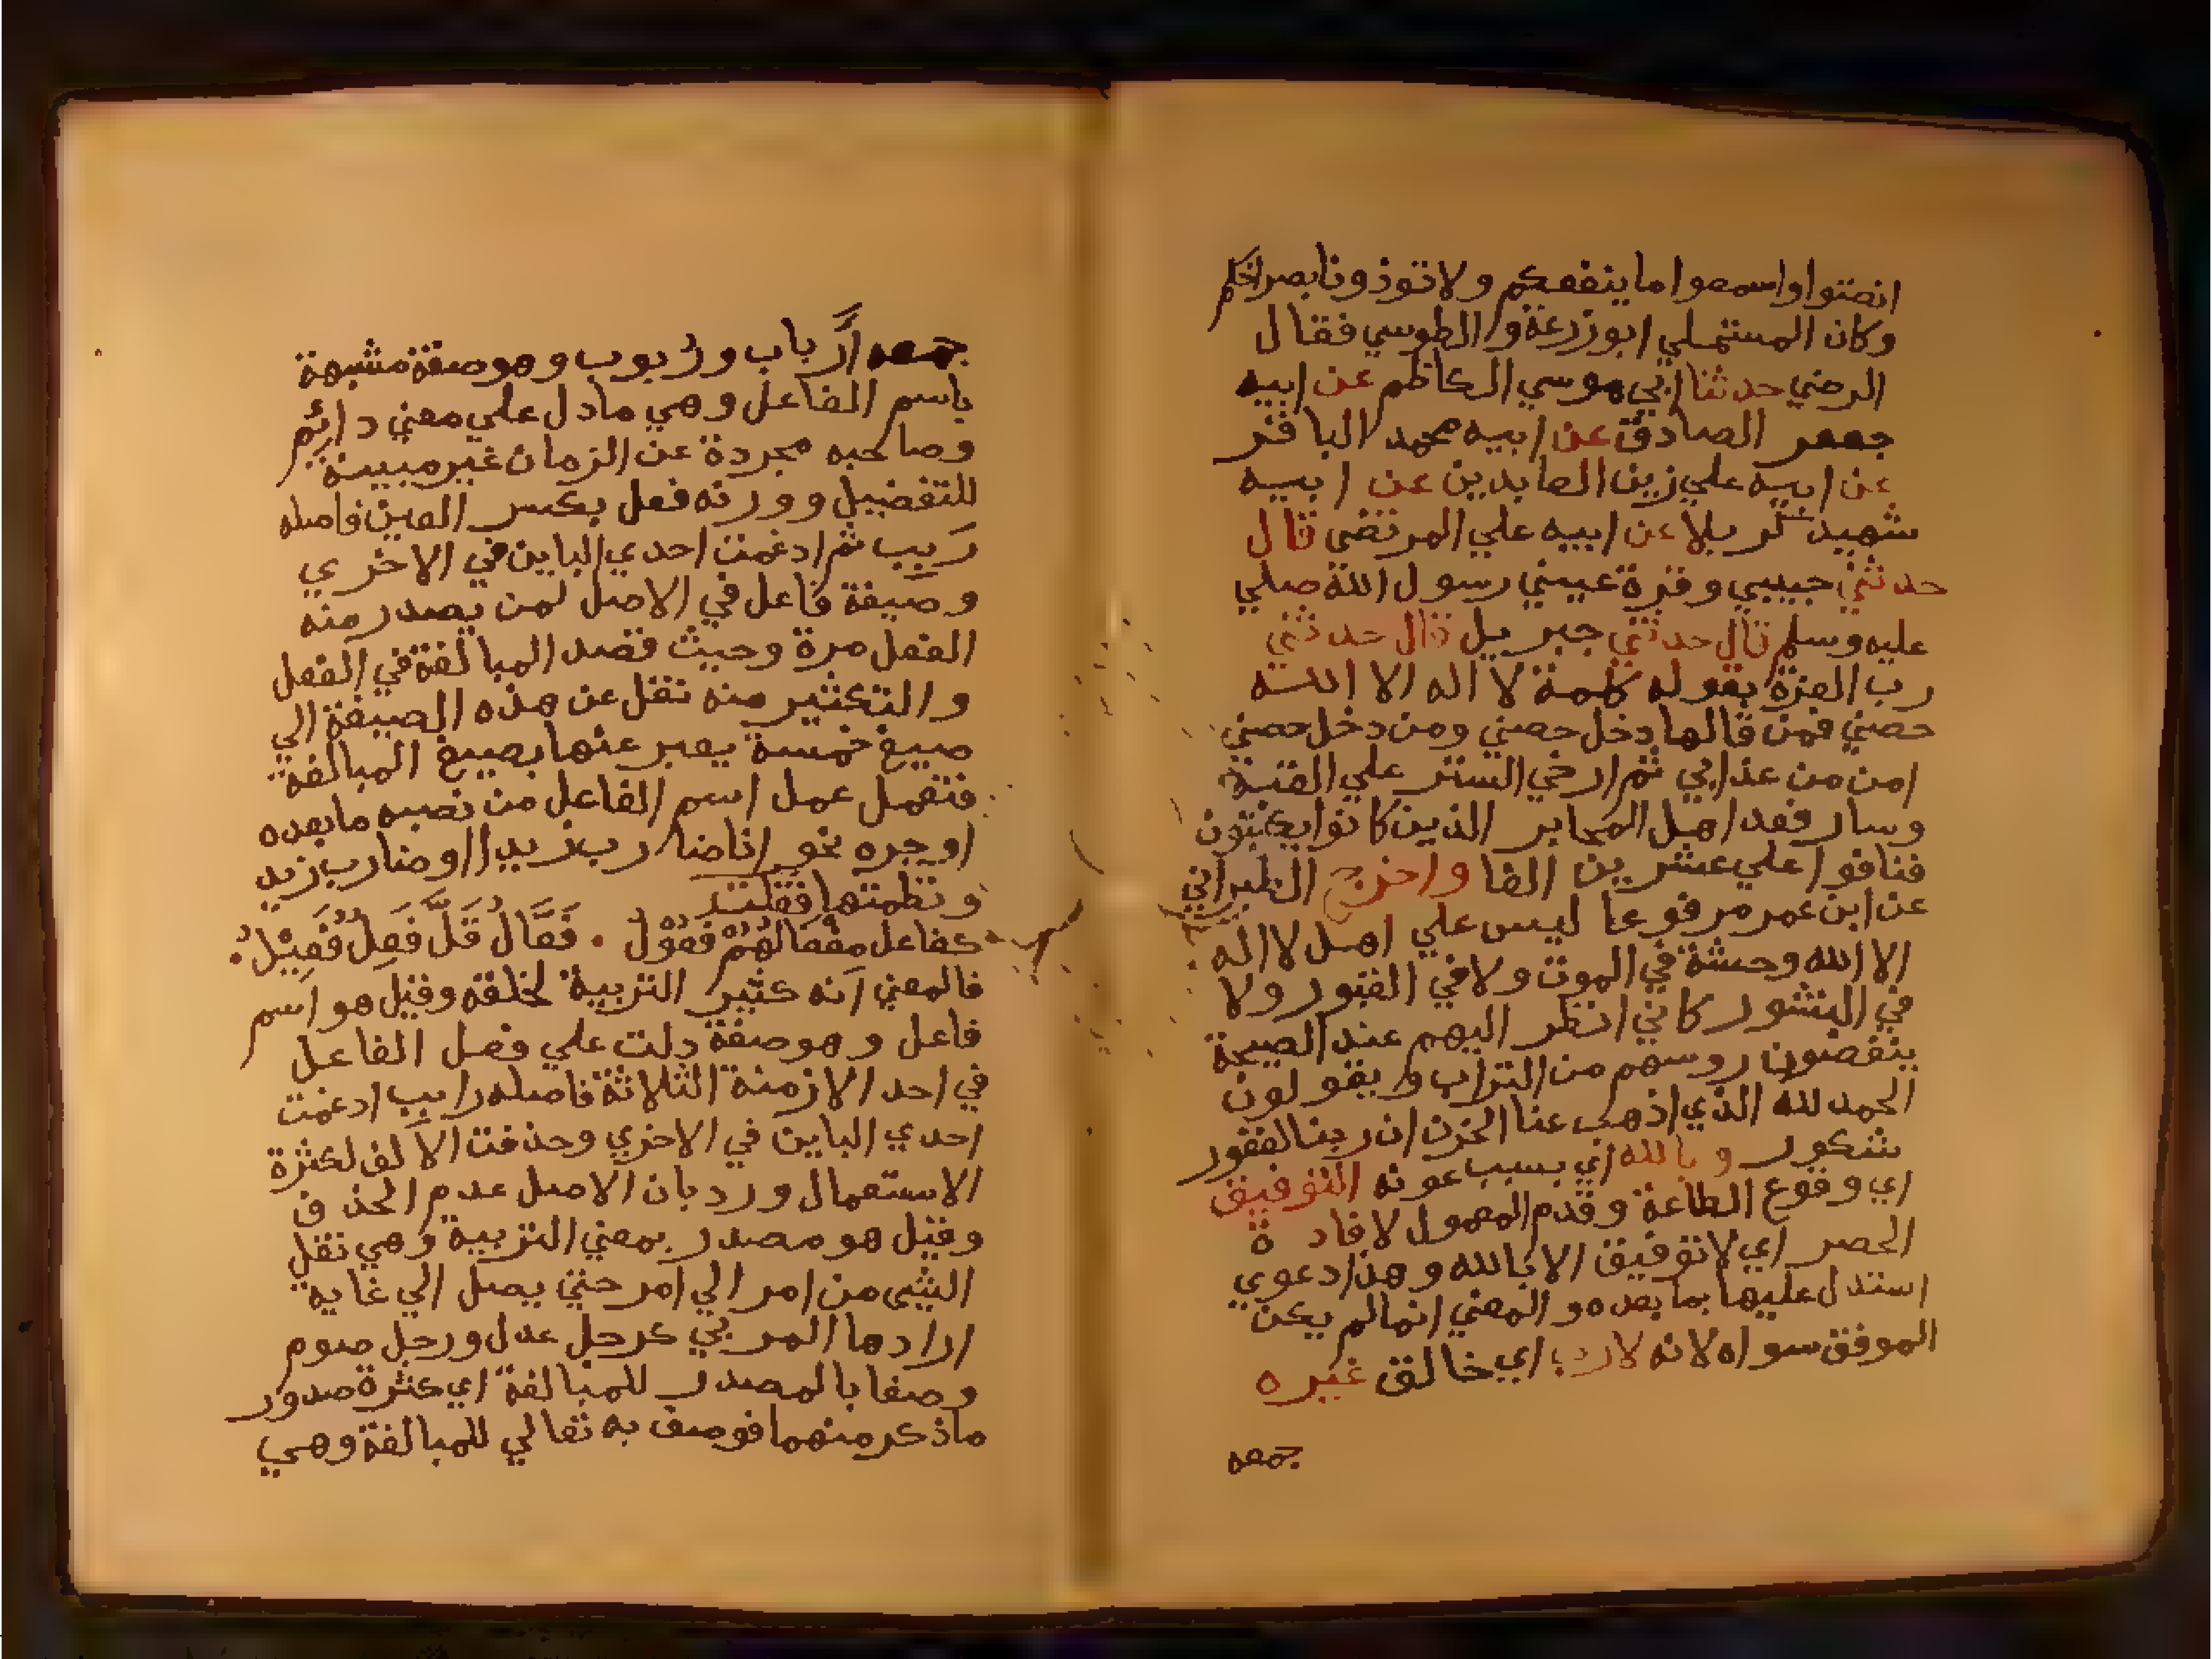 انصتوا واسمعوا ما ينفعكم ولا توذونا بصراخكم
وكان المستملي ابو زرعة والطوسي فقال
الرضي حدثنا ابي موسي الكاظم عن ابيه
جعفر الصادق عن ابيه محمد الباقر
عن ابيه علي زين العابدين عن ابيه
شهيد كربلا عن ابيه علي المرتضي قال
حدثني حبيبي وقرة عيني رسول الله صلي
عليه وسلم قال حدثني جبريل قال حدثني
رب العزة بقوله كلمة لا اله الا الله
حصني فمن قالها دخل حصني ومن دخل حصني
امن من عذابي ثم ارخي الستر علي القبة
وسار فعد اهل المحابر الذين كانوا يكتبون
فنافوا علي عشرين الفا واخرج الطبراني
عن ابن عمر مرفوعا ليس علي اهل لا اله
الا الله وحشة في الموت ولا في القبور ولا
في النشور كاني انظر اليهم عند الصيحة
ينفضون روسهم من التراب ويقولون
الحمد لله الذي اذهب عنا الحزن ان ربنا لغفور
شكور وبالله اي بسبب عونه التوفيق
اي وقوع الطاعة وقدم المعمول لافادة
الحصر اي لا توفيق الا بالله وهذا دعوي
استدل عليها بما بعده والمعني انما لم يكن
الموفق سواه لانه لا رب اي خالق غيره
جمعه
جمعه ارباب وربوب وهو صفة مشبهة
باسم الفاعل وهي ما دل علي معني دائم
وصاحبه مجردة عن الزمان غير مبينة
للتفضيل ووزنه فعل بكسر العين فاصله
ربب ثم ادغمت احدي الباين في الاخري
وصيغة فاعل في الاصل لمن يصدر منه
الفعل مرة وحيث قصد المبالغة في الفعل
والتكثير منه نقل عن هذه الصيغة الي
صيغ خمسة يعبر عنها بصيغ المبالغة
فتعمل عمل اسم الفاعل من نصبه ما بعده
او جره نحو انا ضارب زيدا او ضارب زيد
ونظمتها فقلت
كفاعل مفعالهم فعول . فَعَّال قَلَّ فَعِل فَعِيْل
فالمعني انه كثير التربية لخلقه وقيل هو اسم
فاعل وهو صفة دلت علي فعل الفاعل
في احد الازمنة الثلاثة فاصله رابب ادغمت
احدي الباين في الاخري وحذفت الالف لكثرة
الاستعمال ورد بان الاصل عدم الحذف
وقيل هو مصدر بمعني التربية وهي نقل
الشي من امر الي امر حتي يصل الي غاية
ارادها المربي كرجل عدل ورجل صوم
وصفا بالمصدر للمبالغة اي كثرة صدور
ما ذكر منهما فوصف به تعالي للمبالغة وهي